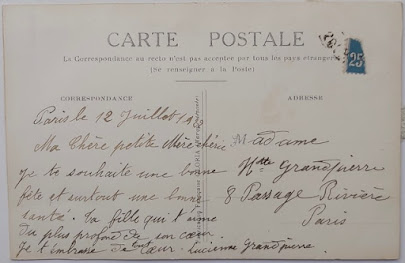 CARTE POSTALE
La Correspondance au recto n'est pas acceptée par tous les pays étrangers
(Se renseigner à la Poste)
25
CORRESPONDANCE
Paris le 12 Juillet
Ma Chère petite Mère chérie
Je te souhaite une bonne
fête et surtout une bonne
santé. Ta fille qui t'aime
du plus profond de son cœur.
Je t'embrasse de tout cœur. Lucienne Grandpierre
ADRESSE
Madame
Grandpierre
8 Passage Rivière
Paris